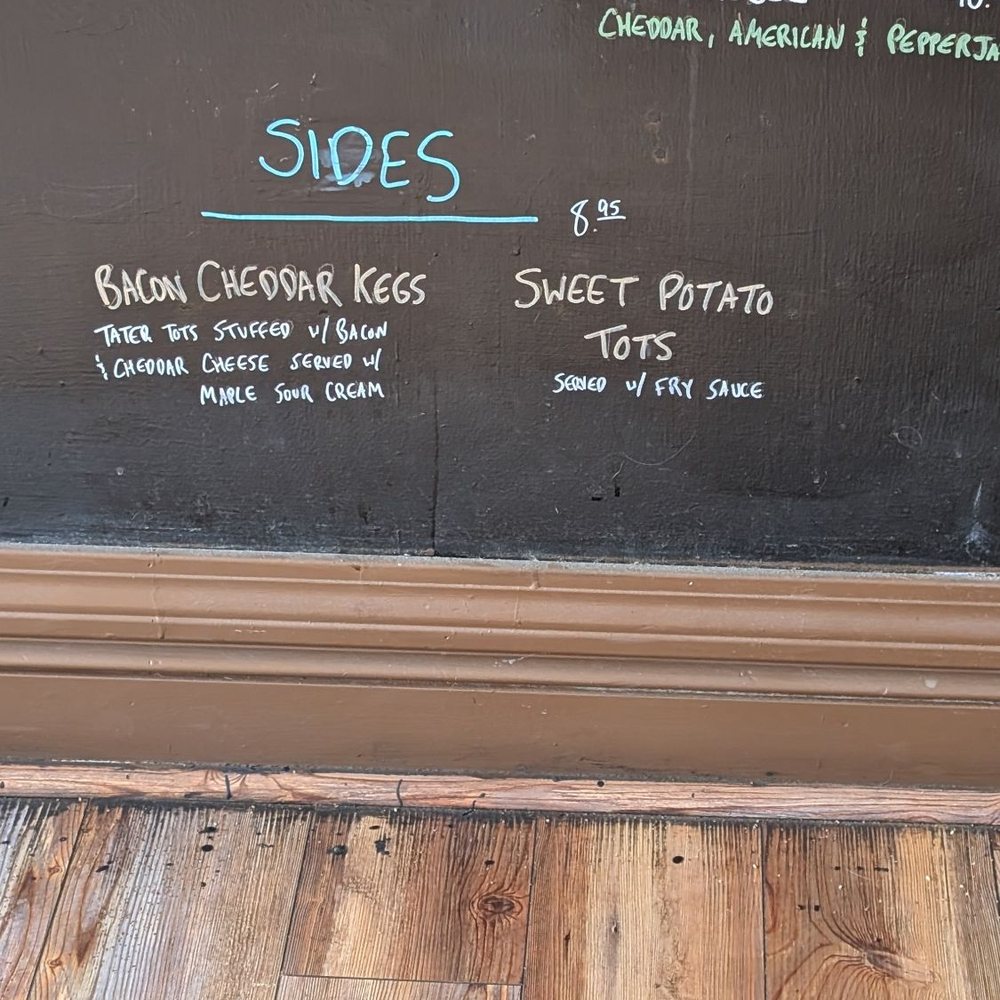 CHEDDAR, AMERICAN &
SIDES
8.95
BACON CHEDDAR KEGS
TATER TOTS STUFFED W/ BACON
& CHEDDAR CHEESE SERVED W/
MAPLE SOUR CREAM
SWEET POTATO
TOTS
SERVED W/ FRY SAUCE